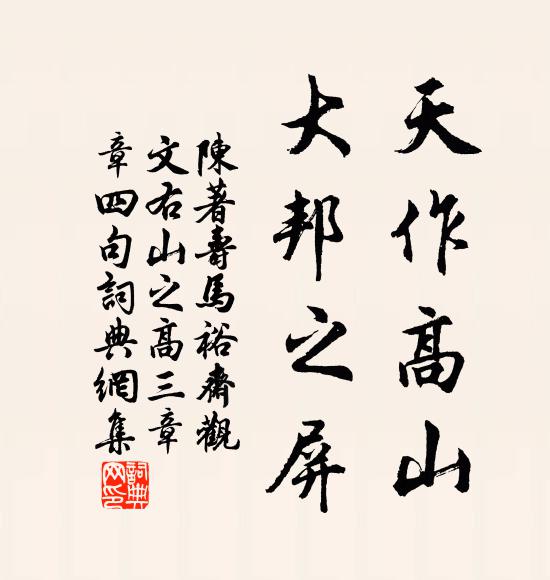 天作高山
大邦之屏
陳著壽馬裕齋觀
文右山之高三章
章四句詞典網集
詞典
网印